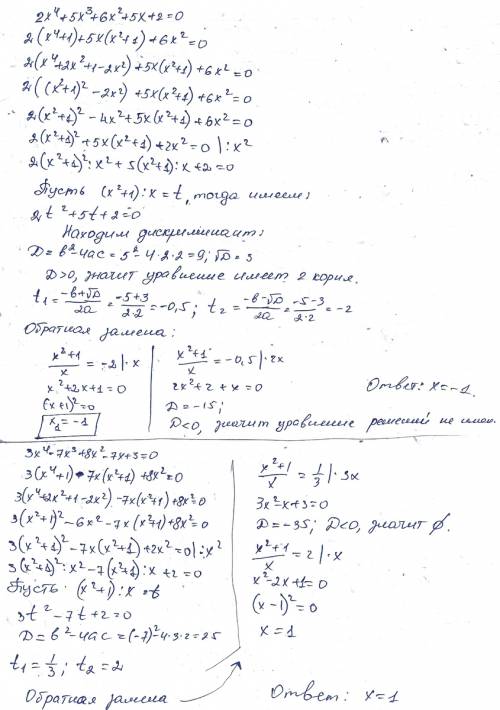 2x⁴+5x³+6x²+5x+2=0
2(x⁴+1)+5x(x²+1)+6x²=0
2(x⁴+2x²+1-2x²)+5x(x²+1)+6x²=0
2((x²+1)²-2x²)+5x(x²+1)+6x²=0
2(x²+1)²-4x²+5x(x²+1)+6x²=0
2(x²+1)²+5x(x²+1)+2x²=0 |:x²
2(x²+1)²:x²+5(x²+1):x+2=0
Пусть (x²+1):x=t, тогда имеем:
2t²+5t+2=0
Находим дискриминант:
D=b²-4ac=5²-4·2·2=9; √D=3
D>0, значит уравнение имеет 2 корня.
t₁=(-b+√D)/2a=(-5+3)/2·2=-0,5; t₂=(-b-√D)/2a=(-5-3)/2·2=-2
Обратная замена:
(x²+1)/x=-2|·x
x²+2x+1=0
(x+1)²=0
x₁=-1
(x²+1)/x=-0,5|·2x
2x²+2+x=0
D=-15;
D<0, значит уравнение решений не имеет.
Ответ: x=-1.
3x⁴-7x³+8x²-7x+3=0
3(x⁴+1)-7x(x²+1)+8x²=0
3(x⁴+2x²+1-2x²)-7x(x²+1)+8x²=0
3(x²+1)²-6x²-7x(x²+1)+8x²=0
3(x²+1)²-7x(x²+1)+2x²=0|:x²
3(x²+1)²:x²-7(x²+1):x+2=0
Пусть (x²+1):x=t
3t²-7t+2=0
D=b²-4ac=(-7)²-4·3·2=25
t₁=1/3; t₂=2
Обратная замена
(x²+1)/x=1/3|·3x
3x²-x+3=0
D=-35; D<0, значит ∅.
(x²+1)/x=2|·x
x²-2x+1=0
(x-1)²=0
x=1
Ответ: x=1